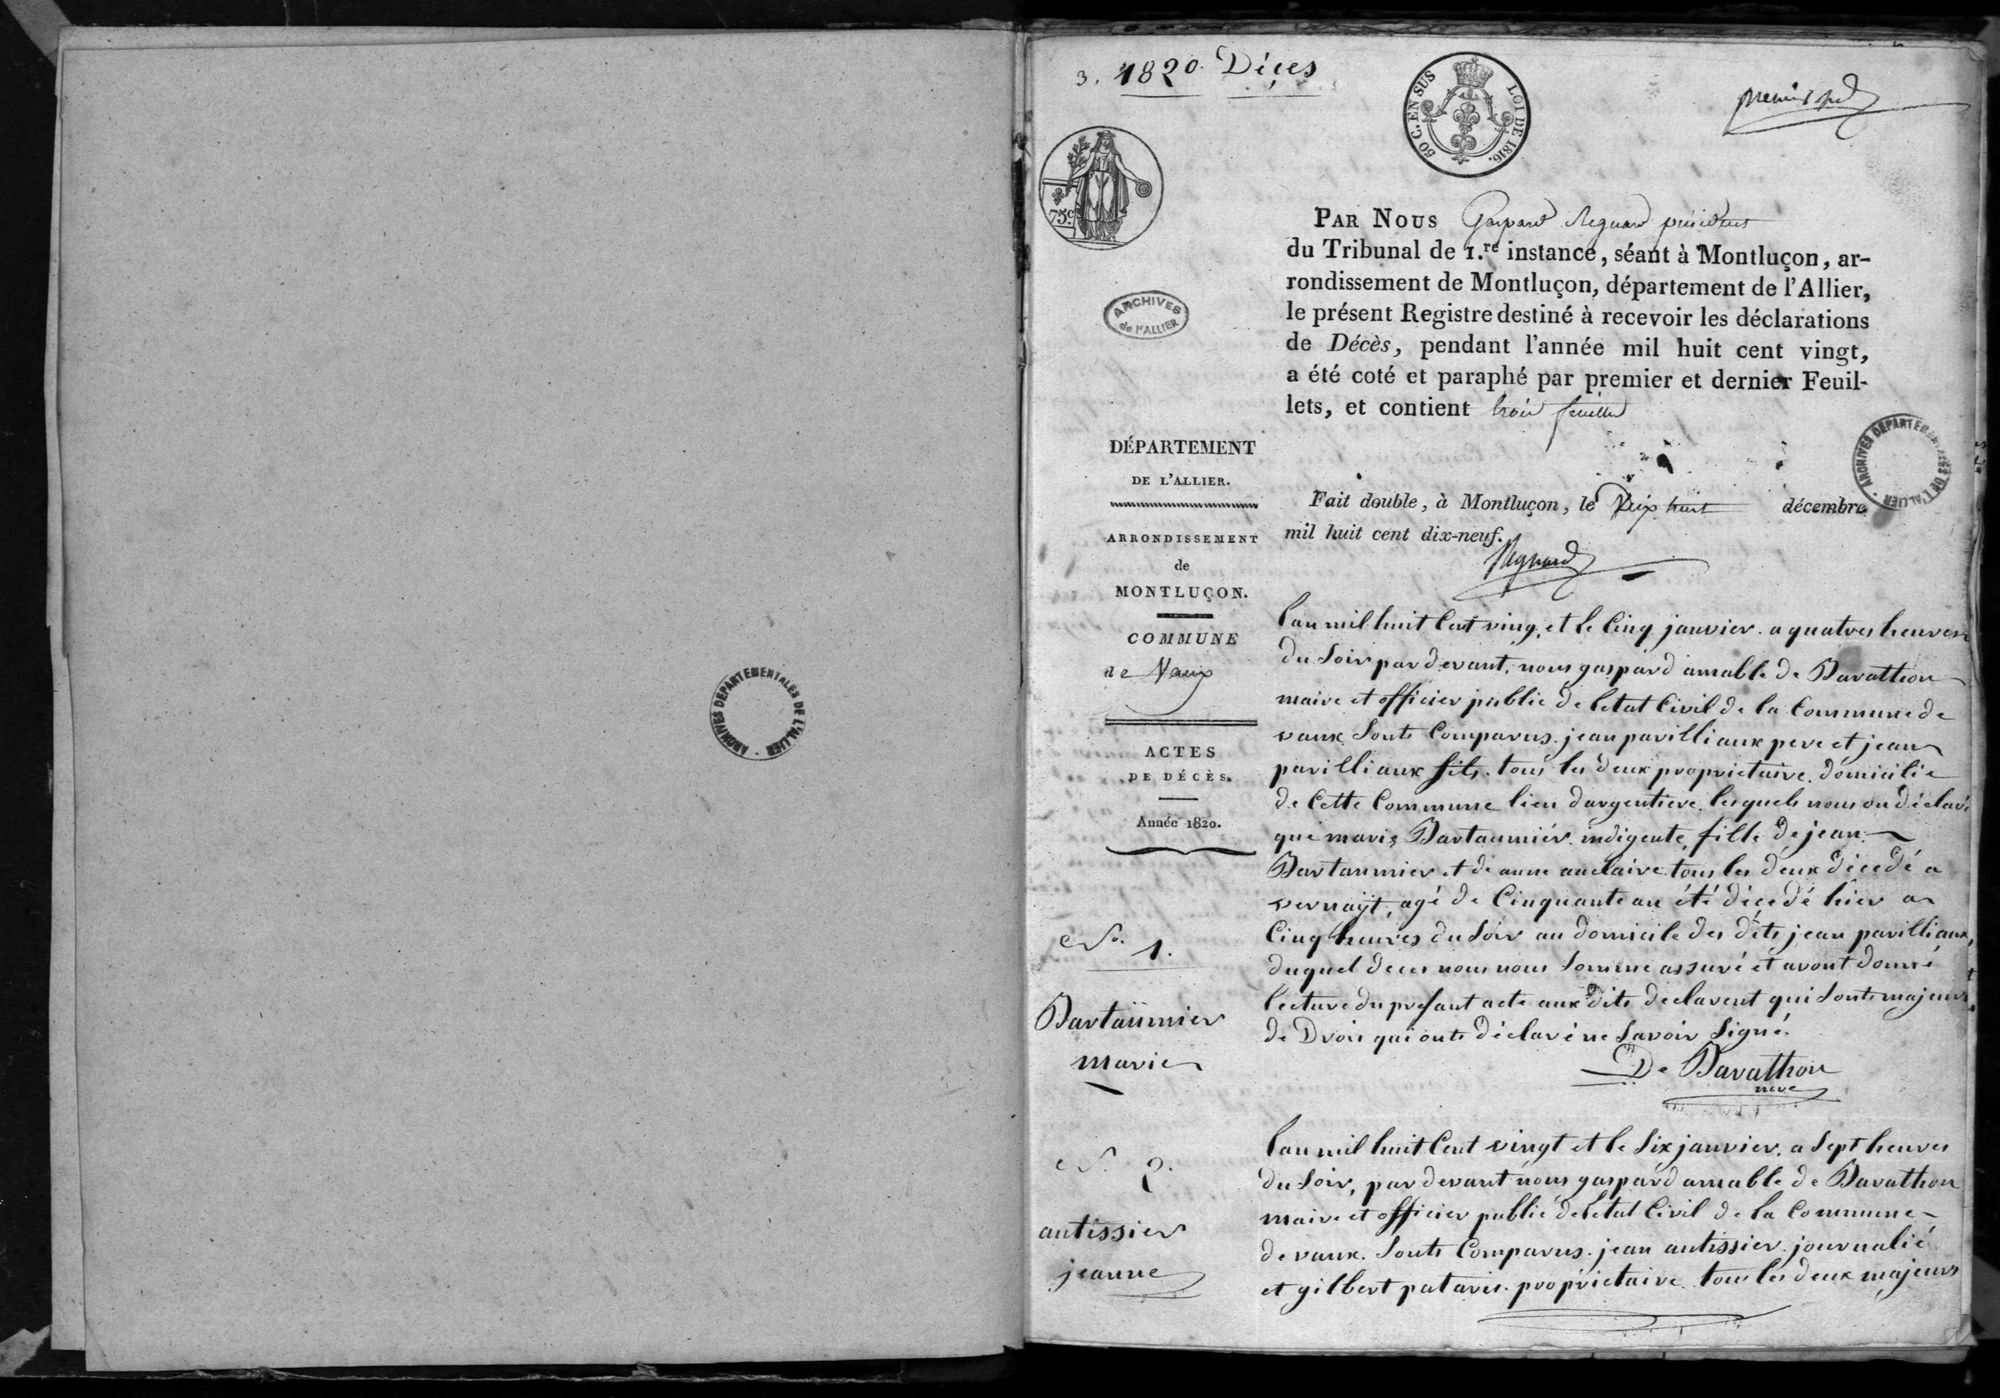 3. 1820. Déçes
50 C. EN SUS LOI DE 1816.
75 c
ARCHIVES de l'ALLIER
ARCHIVES DEPARTEMENTALES DE L'ALLIER
ARCHIVES DEPARTEMENTALES DE L'ALLIER
PAR NOUS Gaspard Regnard président
du Tribunal de 1.re instance, séant à Montluçon, ar-
rondissement de Montluçon, département de l'Allier,
le présent Registre destiné à recevoir les déclarations
de Décès, pendant l'année mil huit cent vingt,
a été coté et paraphé par premier et dernier Feuil-
lets, et contient trois feuilles
Fait double, à Montluçon, le Dix huit décembre
mil huit cent dix-neuf.
Regnard
DÉPARTEMENT
DE L'ALLIER.
ARRONDISSEMENT
de
MONTLUÇON.
COMMUNE
de Vaux
ACTES
DE DÉCÈS.
Année 1820.
No. 1.
Dartaümier
marie
lan mil huit Cent ving, et le Cinq janvier. a quatres heures
du Soir par devant, nous gaspard amable de Davathon
maire et officier public de letat Civil de la Commune de
vaux Sonts Comparus. jean pavilliaux pere et jean
pavilliaux fils. tous les deux proprietaire. domicilié
de Cette Commune lieu dargentiere. lesquels nous on déclaré
que marie Dartaumiér. indigente, fille de jean
Dartaumier et de anne auclaire tous les deux décedé a
vernaÿt, agé de Cinquante an été décedé hier a
Cinq heures du Soir au domicile des dits jean pavilliaux,
duquel deces nous nous Somme assuré et avont donné
lecture du presant acte aux dits declarent qui Sonts majeurs
de Drois qui onts déclaré ne Savoir Signé.
De Davathon
No. 2.
autissier
jeanne
lan mil huit Cent vingt et le Six janvier. a Sept heures
du Soir, par devant nous gaspard amable de Davathon
maire et officier public de létat Civil de la Commune
de vaux. Sonts Comparus. jean autissier. journalié
et gilbert pataris. proprietaire. tous les deux majeurs